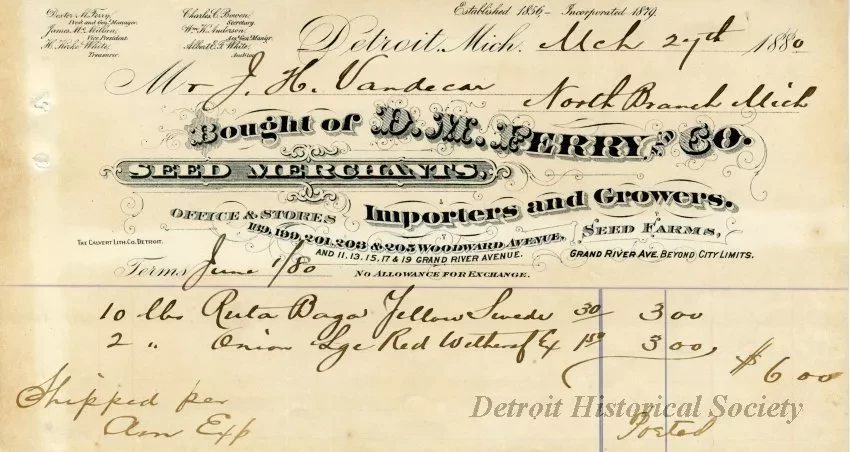 Dexter M. Ferry,
Prest and Gen'l Manager.
James Mc Millan,
Vice President.
H. Kirke White,
Treasurer.
Charles C. Bowen,
Secretary.
Wm K. Anderson,
Ass' Gen. Manag'r.
Albert E. F. White,
Auditor.
Established 1856 – Incorporated 1879.
Detroit, Mich. Mch 27th 1880
Mr J. H. Vandecar
North Branch Mich
Bought of D. M. FERRY AND CO.
SEED MERCHANTS,
Importers and Growers.
OFFICE & STORES
199, 201, 203 & 205 WOODWARD AVENUE,
AND 11, 13, 15, 17 & 19 GRAND RIVER AVENUE.
SEED FARMS,
GRAND RIVER AVE. BEYOND CITY LIMITS.
THE CALVERT LITH. CO. DETROIT.
Terms June 1/80
NO ALLOWANCE FOR EXCHANGE.
10 lbs Ruta Baga Yellow Swede 30 3 00
2 " Onion Lge Red Wethersf Ex 1 50 3 00
$6 00
Shipped per
Am Exp
Posted
Detroit Historical Society